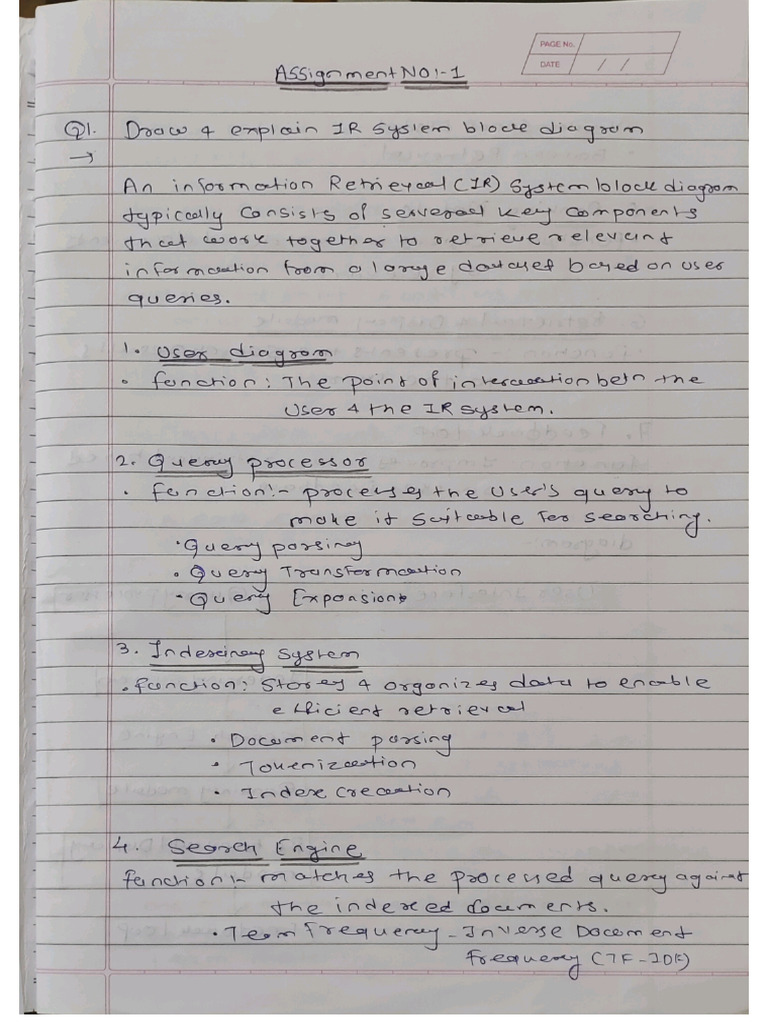 PAGE No.
DATE / /
Assignment NO:-1
Q1. Draw & explain IR System block diagram
→
An information Retrieval (IR) System block diagram
typically consists of serveral key components
that work together to retrieve relevant
information from a large dataset based on user
queries.
1. User diagram
• function: The point of interaction betn the
User & the IR System.
2. Query processor
• function:- processes the User's query to
make it suitable for searching.
• Query parsing
• Query Transformation
• Query Expansion
3. Indexing System
• function: Stores & organizes data to enable
efficient retrieval
• Document parsing
• Tokenization
• Index creation
4. Search Engine
function:- matches the processed query against
the indexed documents.
• Team frequency - Inverse Document
frequency (TF-IDF)